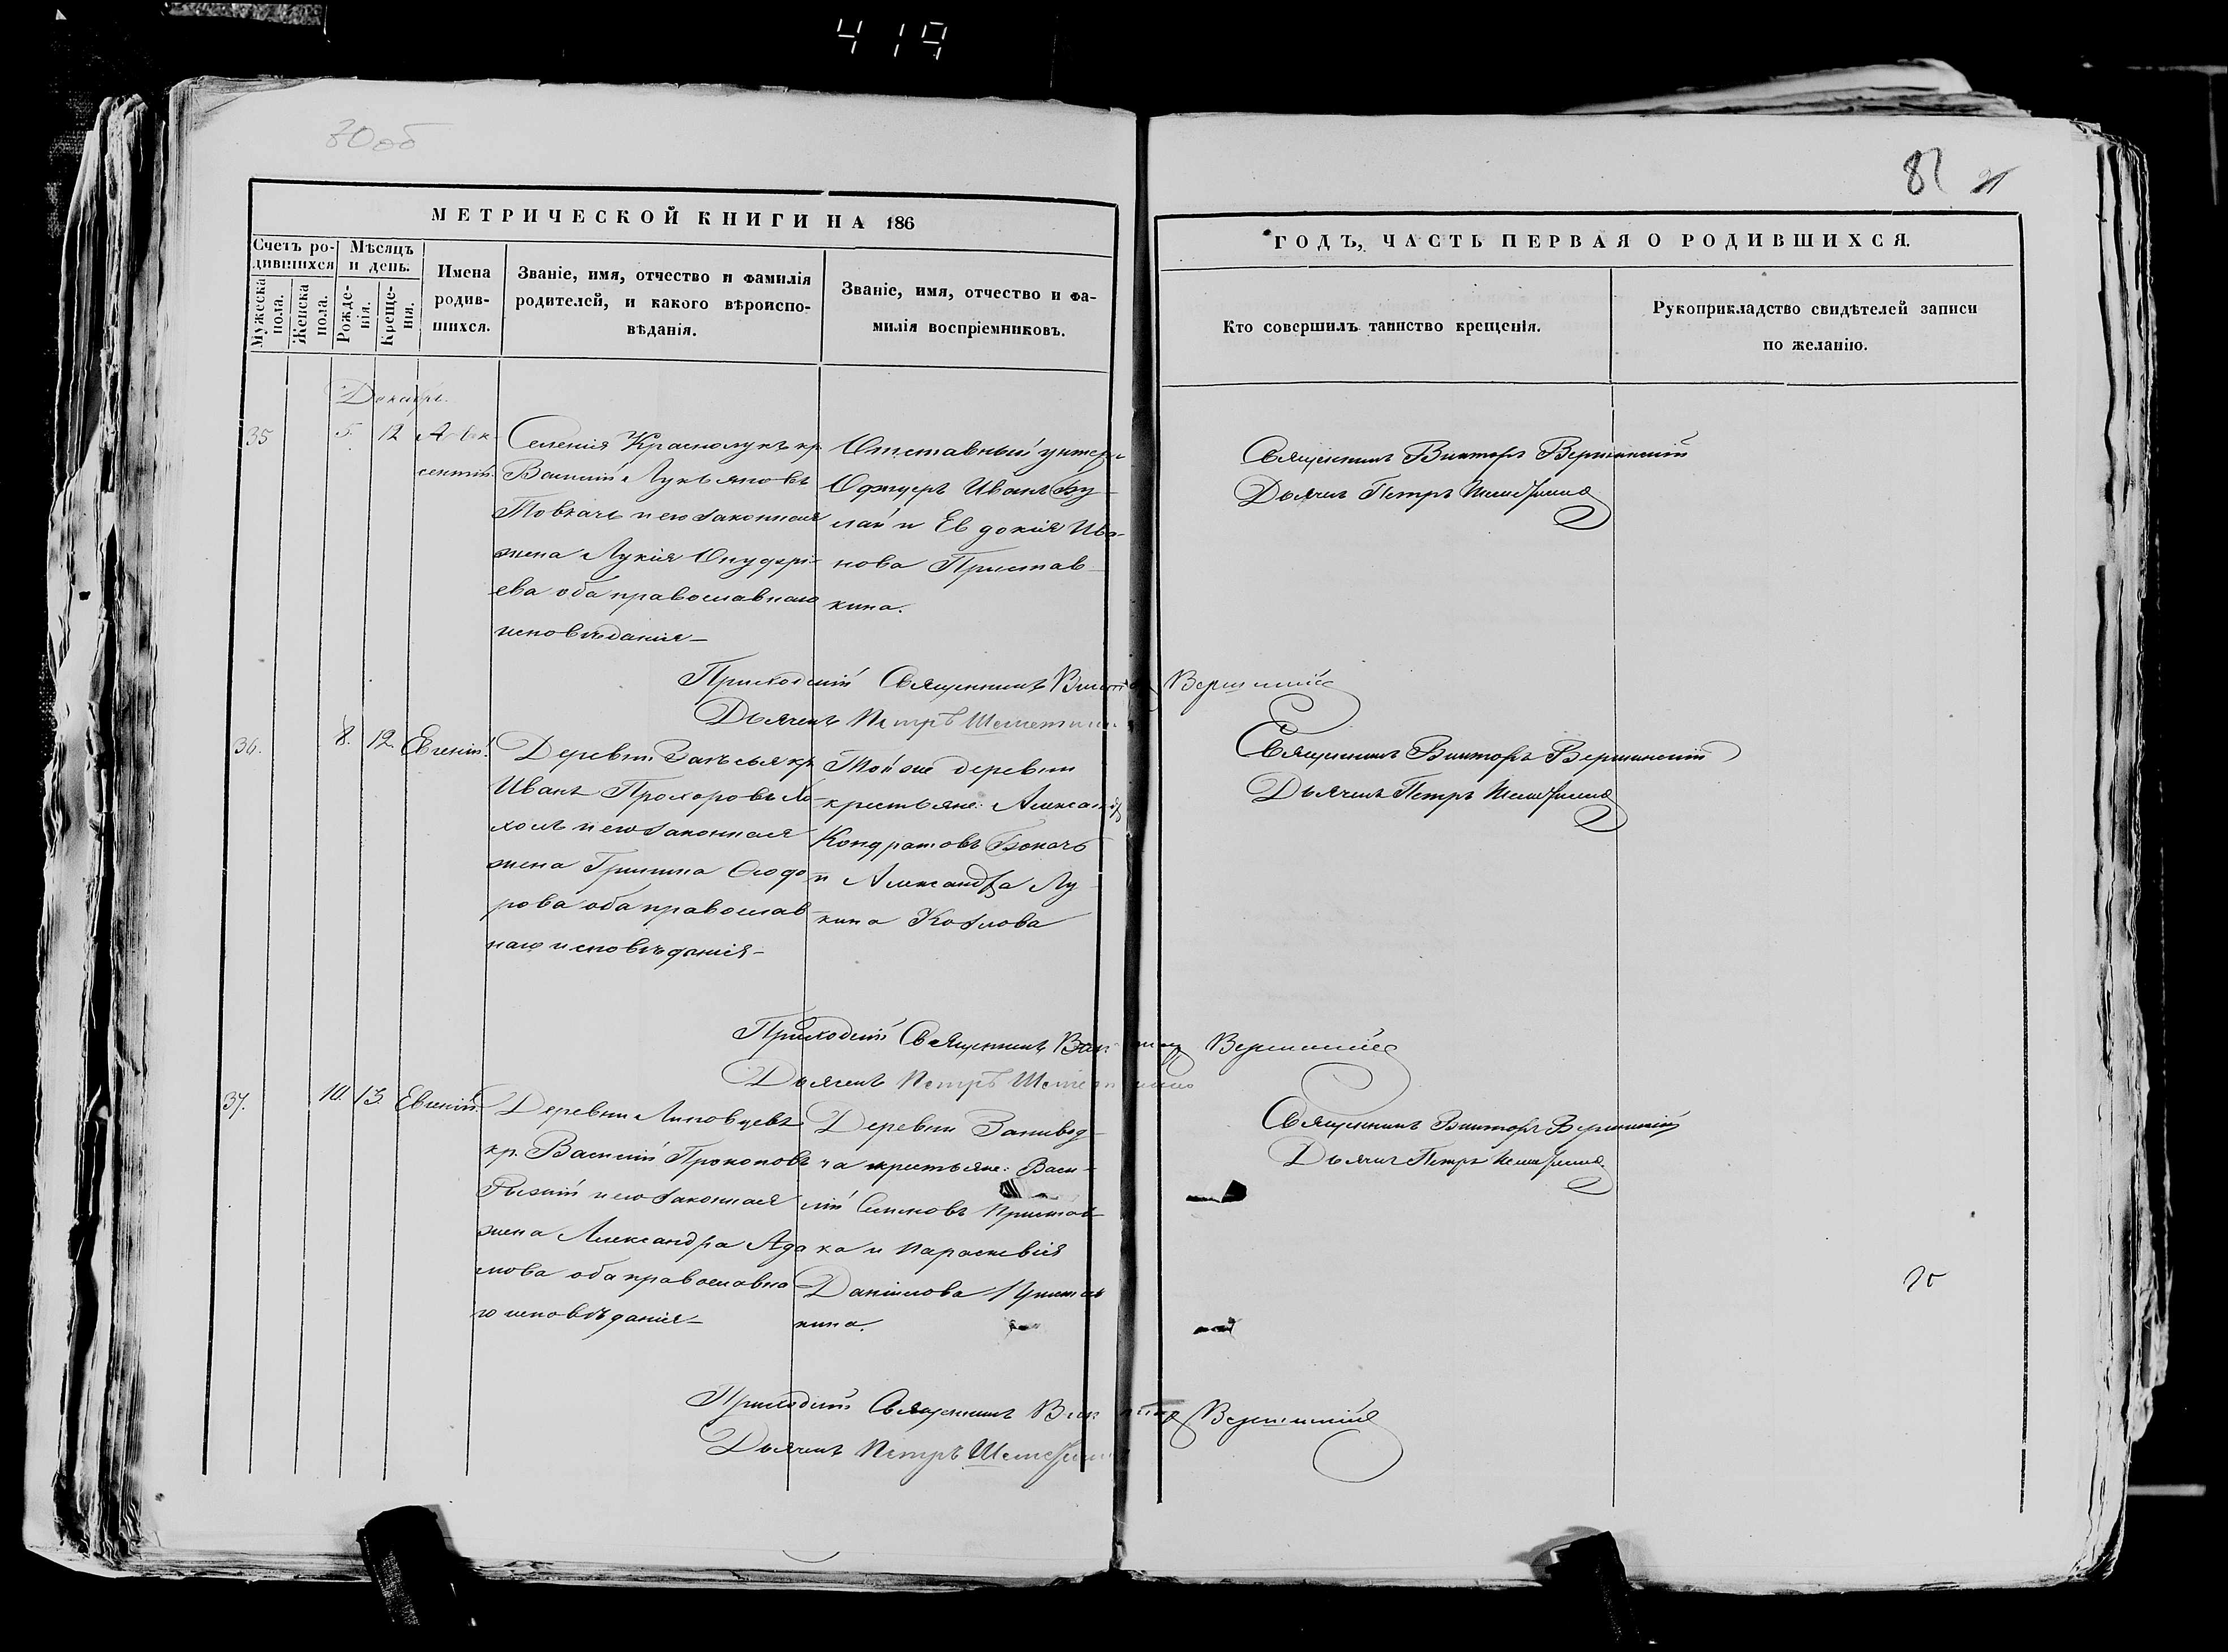 419
80об
81
МЕТРИЧЕСКОЙ КНИГИ НА 186
ГОДЪ, ЧАСТЬ ПЕРВАЯ О РОДИВШИХСЯ.
Счетъ ро-
дившихся
Мужеска
пола.
Женска
пола.
Мѣсяцъ
и день.
Рожде-
нія.
Креще-
нія.
Имена
родив-
шихся.
Званіе, имя, отчество и фамилія
родителей, и какого вѣроиспо-
вѣданія.
Званіе, имя, отчество и фа-
милія воспріемниковъ.
Кто совершилъ таинство крещенія.
Рукоприкладство свидѣтелей записи
по желанію.
Декабрь.
35
5.
12
Авк-
сентій.
Селенія Краснолукъ кр.
Василій Лукьяновъ
Товкачъ и его законная
жена Лукія
ева оба православнаго
исповѣданія
Отставный унтеръ
Офицеръ Иванъ Бу-
лай и Евдокія Ива-
нова Пристав-
кина.
Священникъ Викторъ Вершинскій
Дьячекъ Петръ
Приходскій Священникъ Викторъ Вершинскій
Дьячекъ Петръ
36.
8.
12.
Евгеній.
Деревни кр.
Иванъ Прохоровъ Хо-
и его законная
жена Ѳеодо-
рова оба православ-
наго исповѣданія
Той же деревни
крестьяне: Александръ
Кондратовъ
и Александра Лу-
кина Козлова
Священникъ Викторъ Вершинскій
Дьячекъ Петръ
Приходскій Священникъ Викторъ Вершинскій
Дьячекъ Петръ
37.
10.
13.
Евгеній.
Деревни Липовцевъ
кр. Василій Прокоповъ
Рыжій и его законная
жена Александра Ада-
мова оба православна-
го исповѣданія
Деревни
крестьяне: Васи-
лій Семеновъ Пристав-
ка и Параскевія
Даніилова Пристав-
кина.
Священникъ Викторъ Вершинскій
Дьячекъ Петръ
Приходскій Священникъ Викторъ Вершинскій
Дьячекъ Петръ